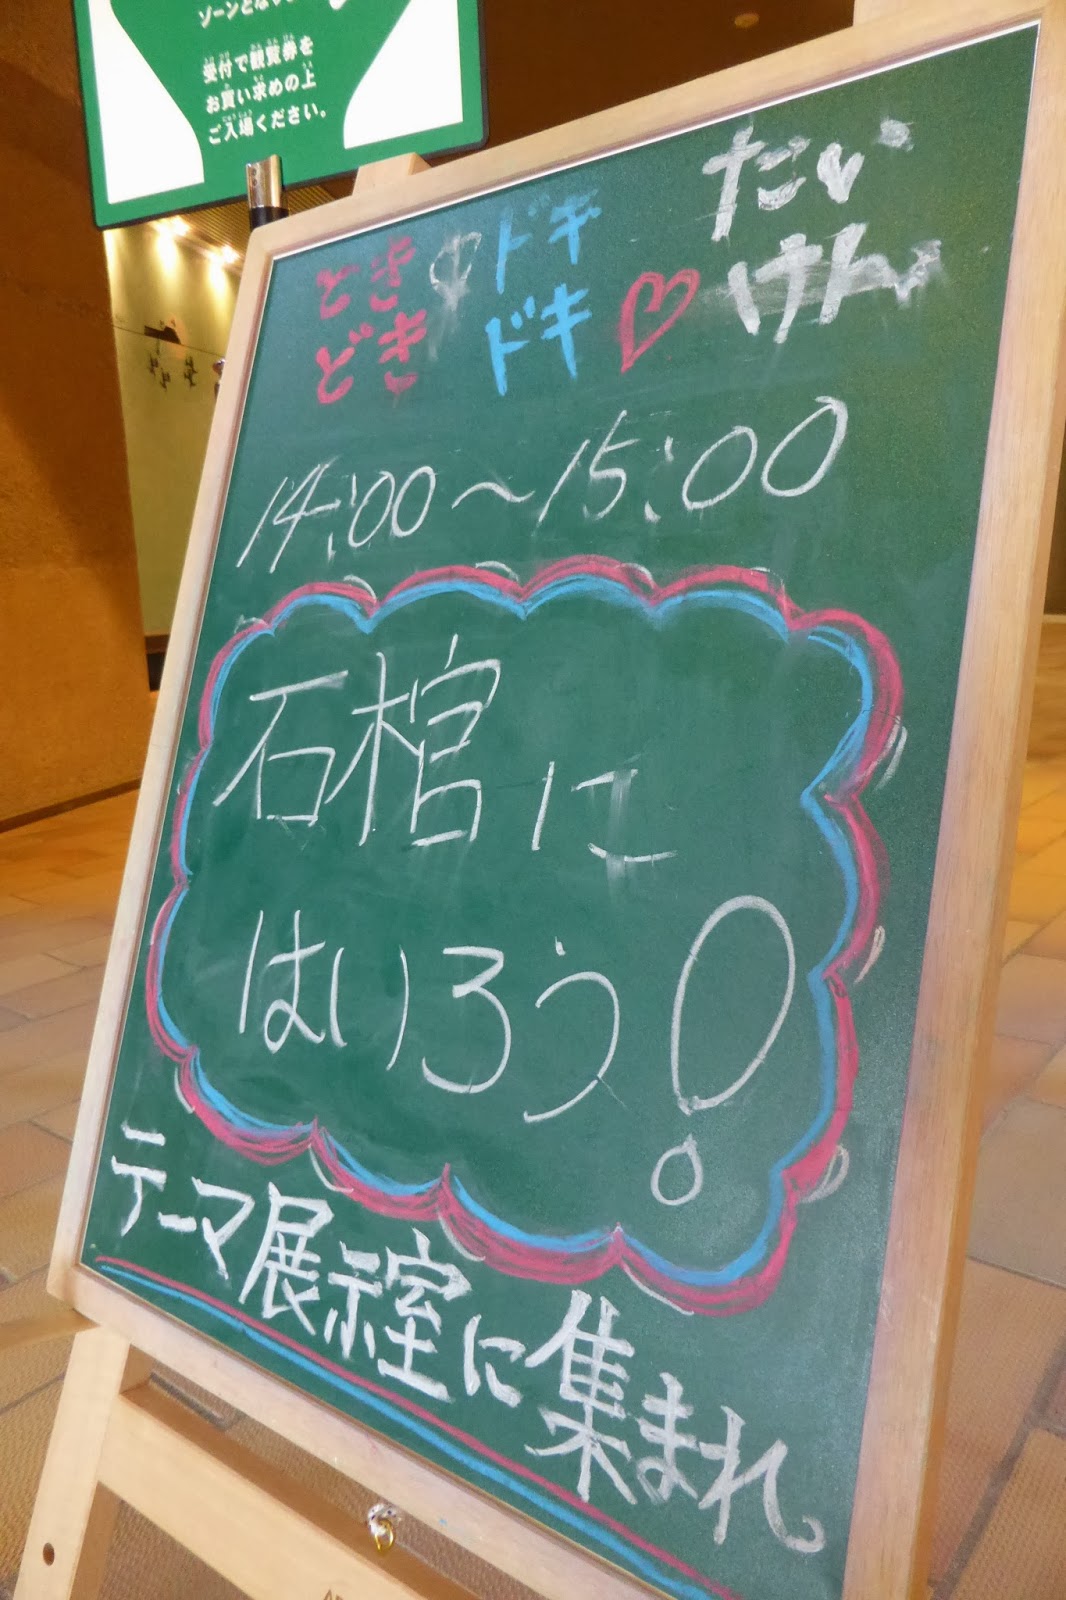 受付で観覧券を
お買い求めの上
ご入場ください。
どき
どき
ドキ
ドキ
たい
けん
14:00～15:00
石棺に
はいろう!
テーマ展示室に集まれ